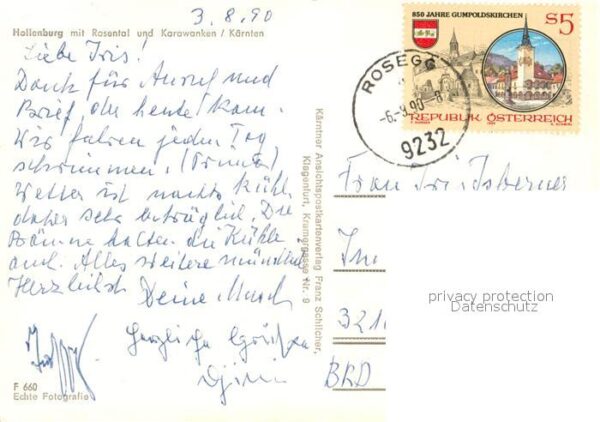 3.8.90
Hollenburg mit Rosental und Karawanken / Kärnten
Liebe Iris!
Dank für Anruf und
Brief, der heute kam.
Wir fahren jeden Tag
schwimmen. (Prima)
Wetter ist nachts kühl,
daher sehr
Bäume halten die Kühle
auch. Alles weitere mündlich
Herzlichst Deine
Herzliche Grüße
F 660
Echte Fotografie
Kärntner Ansichtspostkartenverlag Franz Schilcher,
Klagenfurt, Kramergasse Nr. 9
850 JAHRE GUMPOLDSKIRCHEN
S5
REPUBLIK ÖSTERREICH
ROSEGG
-6.-8.90-8
9232
Frau Iris
321
BRD
privacy protection
Datenschutz